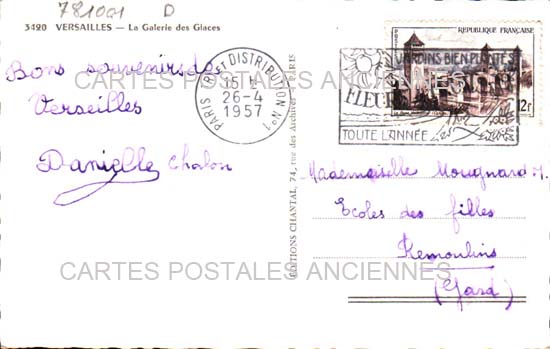 781001 D
3420 VERSAILLES — La Galerie des Glaces
Bons souvenirs de
Verseilles
Danielle Chalon
PARIS TRI ET DISTRIBUTION N°1
15 H
26-4
1957
JARDINS BIEN PLANTÉS
FLEURIS
TOUTE L'ANNÉE
REPUBLIQUE FRANÇAISE
12f
EDITIONS CHANTAL, 74, rue des Archives - PARIS
Mademoiselle Mougnard M.
Ecoles des filles
Remoulins
(Gard)
CARTES POSTALES ANCIENNES
CARTES POSTALES ANCIENNES